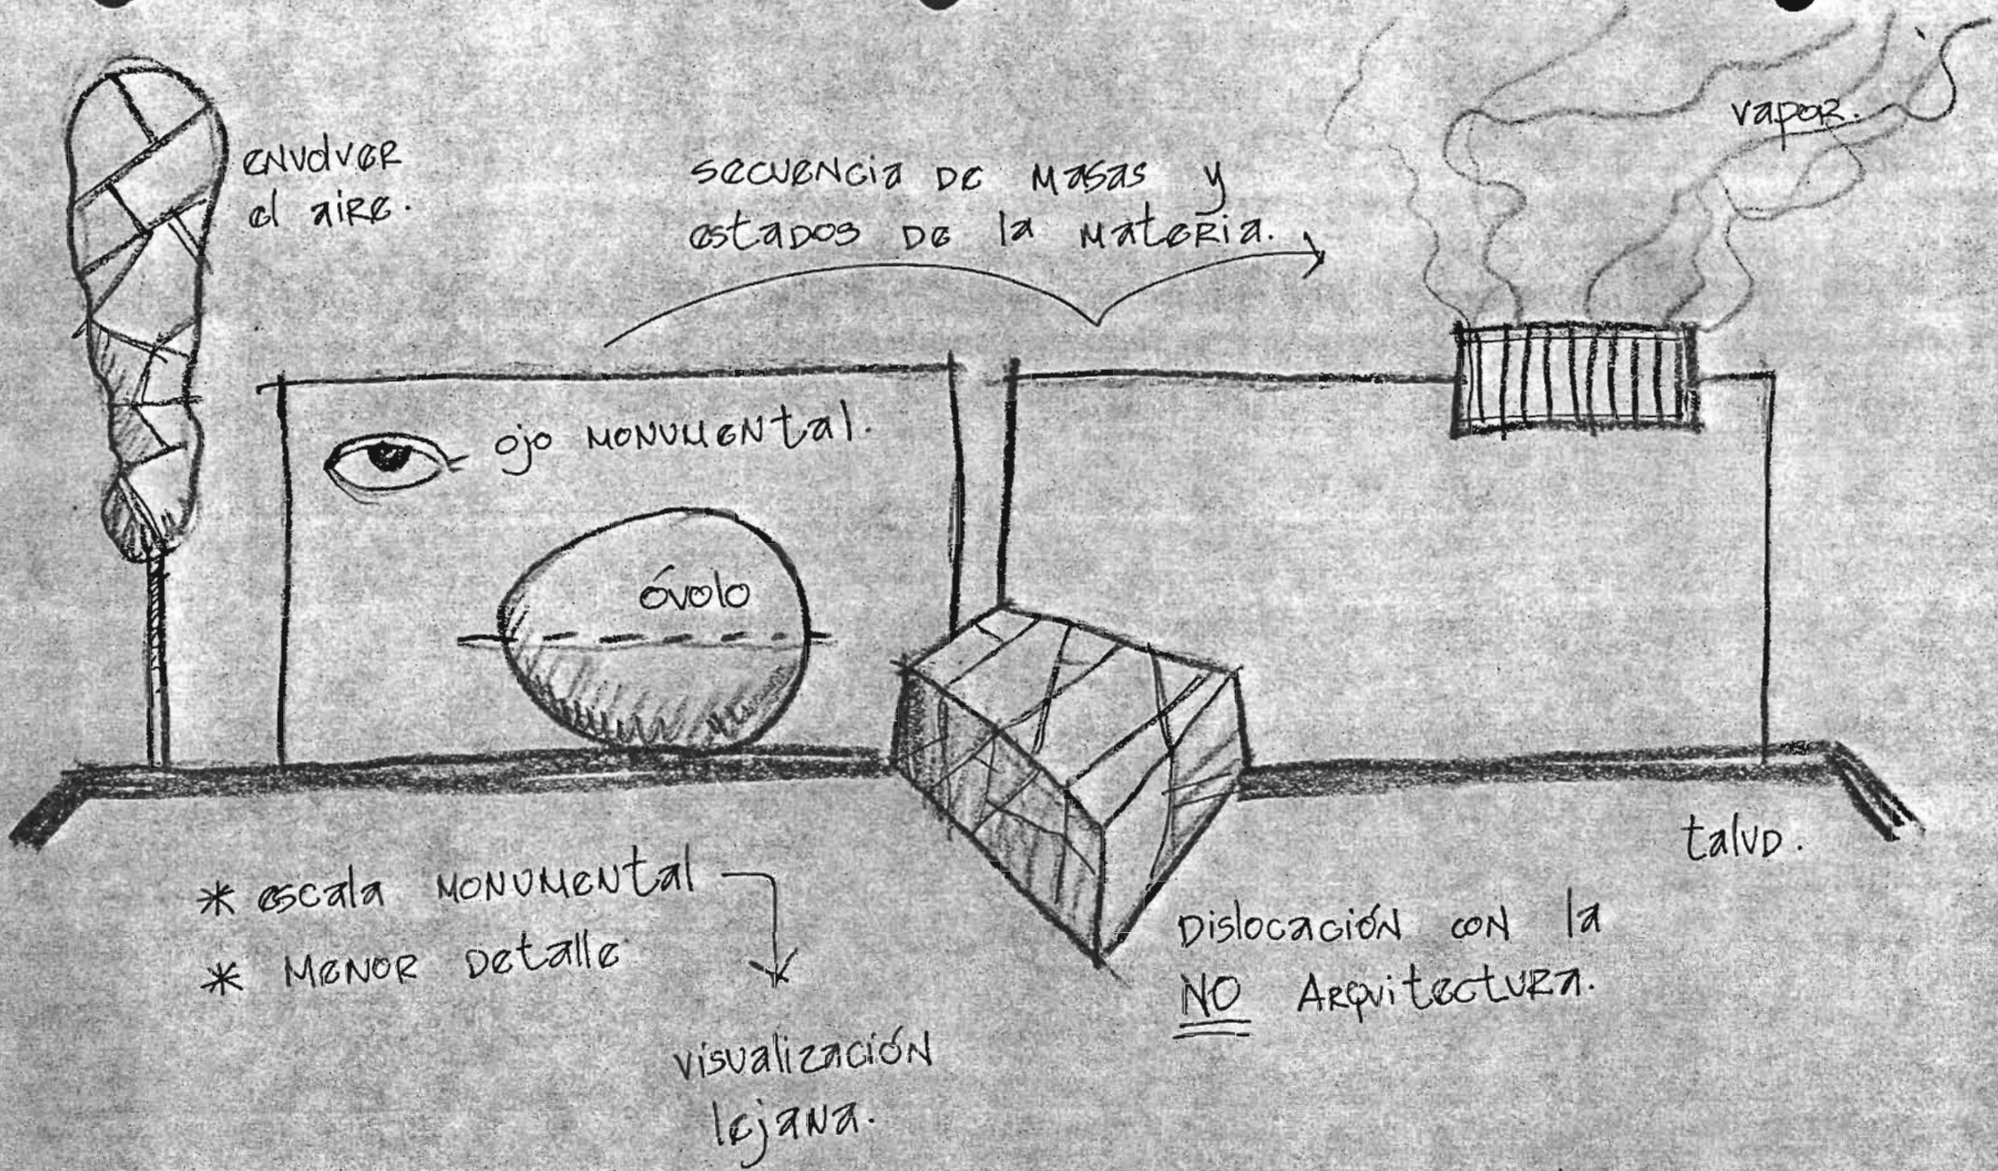 envolver
el aire.
secuencia de masas y
estados de la materia.
vapor.
ojo monumental.
óvolo
talud.
* escala monumental
* menor detalle
visualización
lejana.
Dislocación con la
NO Arquitectura.